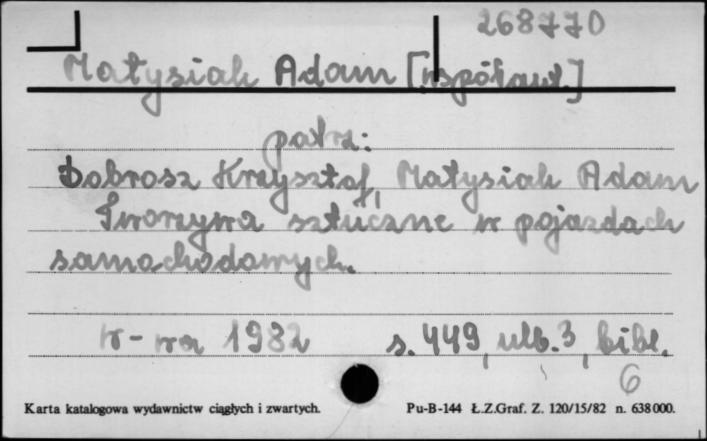 268770
Matysiak Adam [współaut.]
patrz:
Dobrosz Krzysztof, Matysiak Adam
Tworzywa sztuczne w pojazdach
samochodowych.
W-wa 1982 s. 449, ulb. 3, bibl.
6
Karta katalogowa wydawnictw ciągłych i zwartych. Pu-B-144 Ł.Z.Graf. Z. 120/15/82 n. 638000.